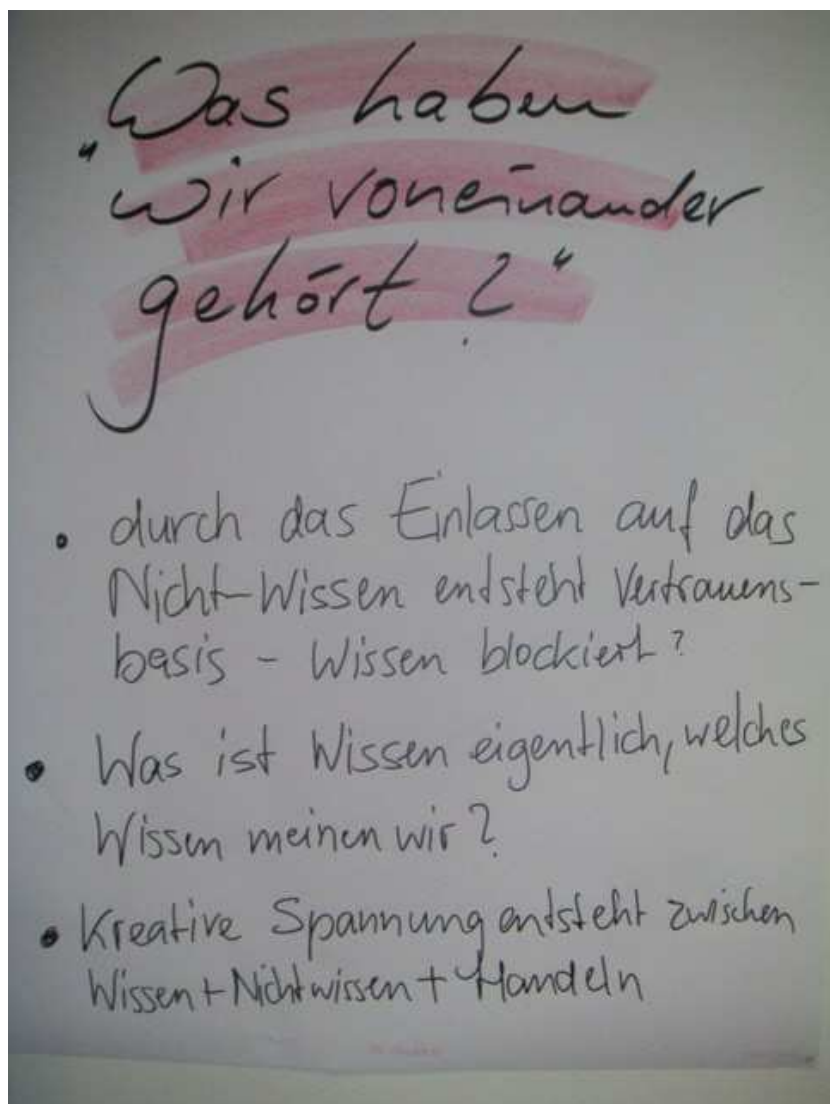 „Was haben
wir voneinander
gehört?“
• durch das Einlassen auf das
Nicht-Wissen entsteht Vertrauens-
basis - Wissen blockiert?
• Was ist Wissen eigentlich, welches
Wissen meinen wir?
• Kreative Spannung entsteht zwischen
Wissen + Nichtwissen + Handeln